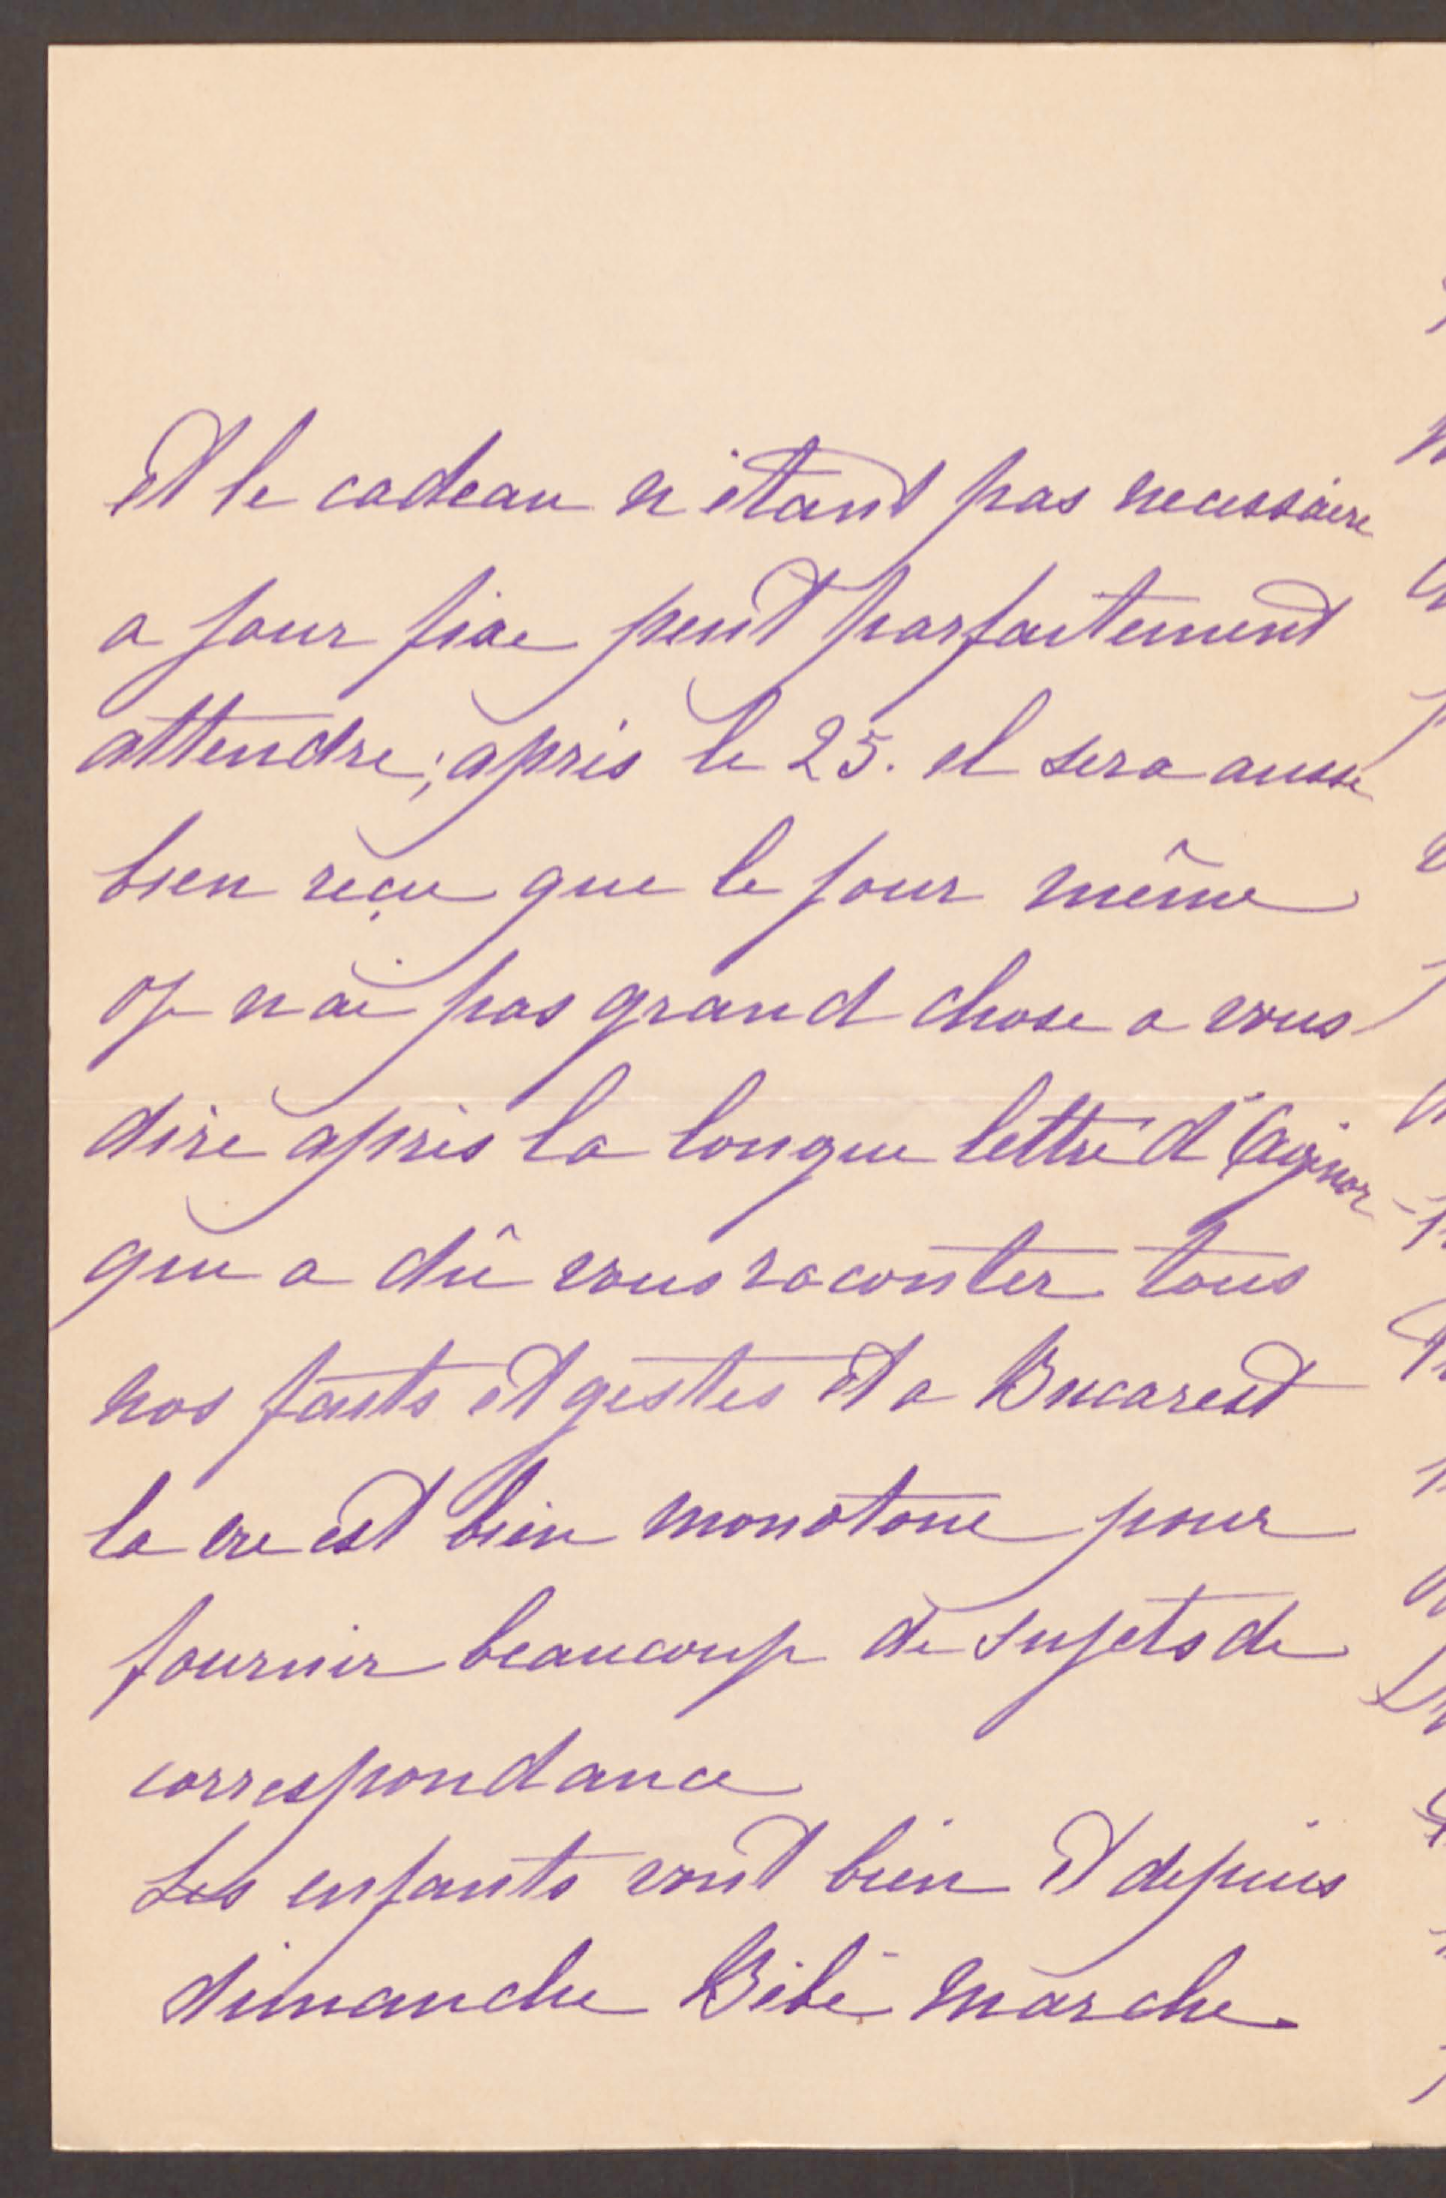 et le cadeau n'étant pas necessaire
a jour fixe peut parfaitement
attendre; après le 25. il sera aussi
bien reçu que le jour même
Je n'ai pas grand chose a vous
dire après la longue lettre d'Agénor
qui a dû vous raconter tous
nos faits et gestes et a Bucarest
la vie est bien monotone pour
fournir beaucoup de sujets de
correspondance
Les enfants vont bien et depuis
dimanche Bébé marche.